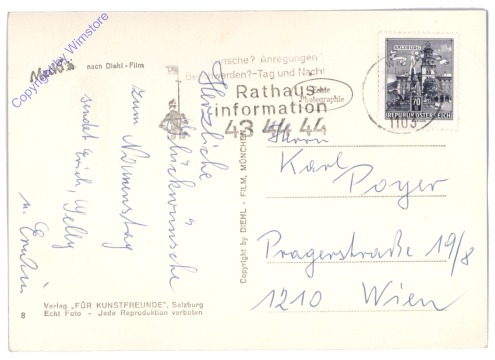 Copyright by Wimstore
nach Diehl-Film
Wünsche? Anregungen
Beschwerden?-Tag und Nacht
Rathaus
information
43 44 44
Echte
Photographie
SALZBURG
70
REPUBLIK ÖSTERREICH
1103
Herzliche
Glückwünsche
zum Namenstag
sendet Erich, Gelly
u. Erwin
Copyright by DIEHL - FILM, MÜNCHEN
Herrn
Karl
Poyer
Pragerstraße 19/8
1210 Wien
Verlag „FÜR KUNSTFREUNDE", Salzburg
Echt Foto - Jede Reproduktion verboten
8